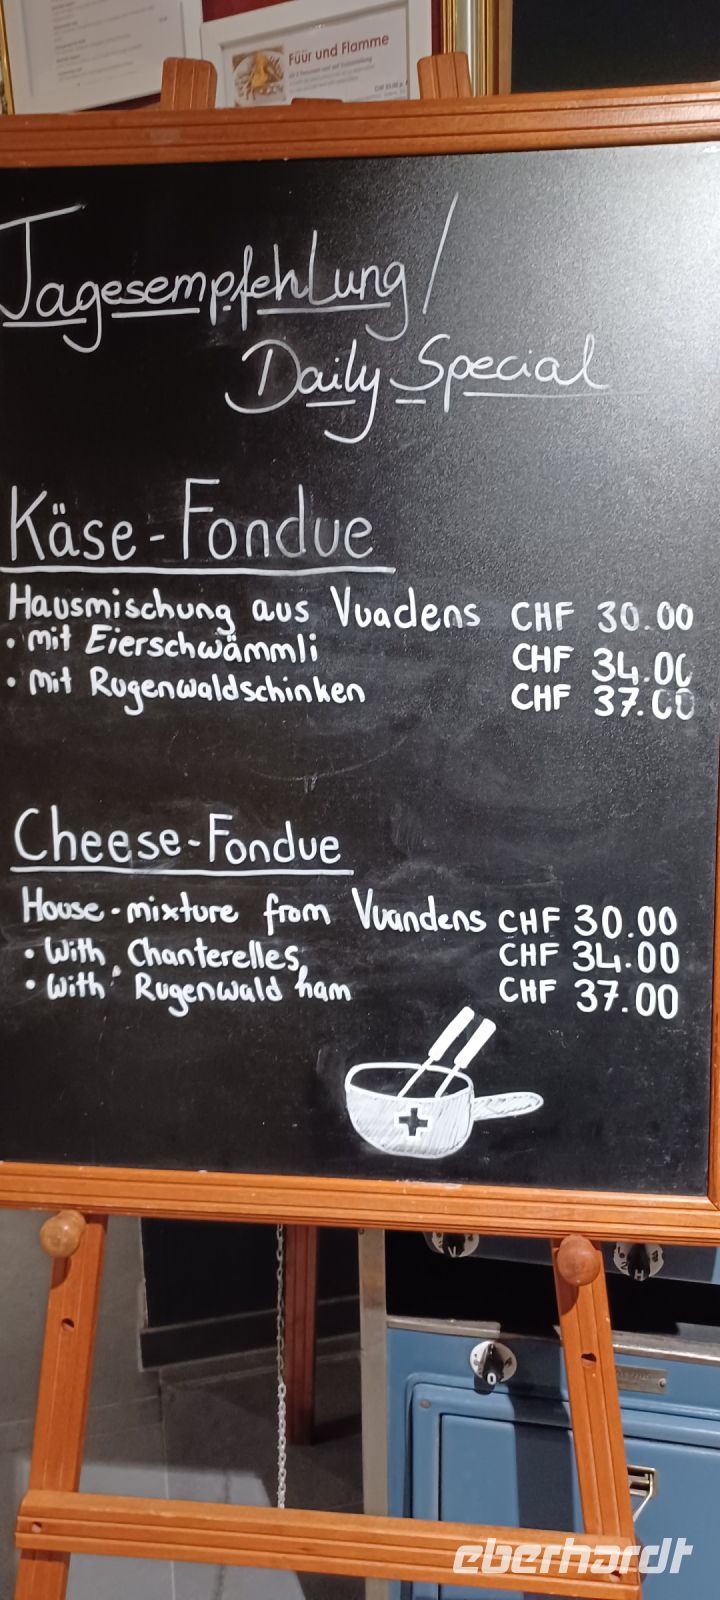 Füür und Flamme
Tagesempfehlung/
Daily Special
Käse-Fondue
Hausmischung aus Vuadens CHF 30.00
• mit Eierschwämmli CHF 34.00
• mit Rugenwaldschinken CHF 37.00
Cheese-Fondue
House-mixture from Vuandens CHF 30.00
• With Chanterelles, CHF 34.00
• With Rugenwald ham CHF 37.00
eberhardt